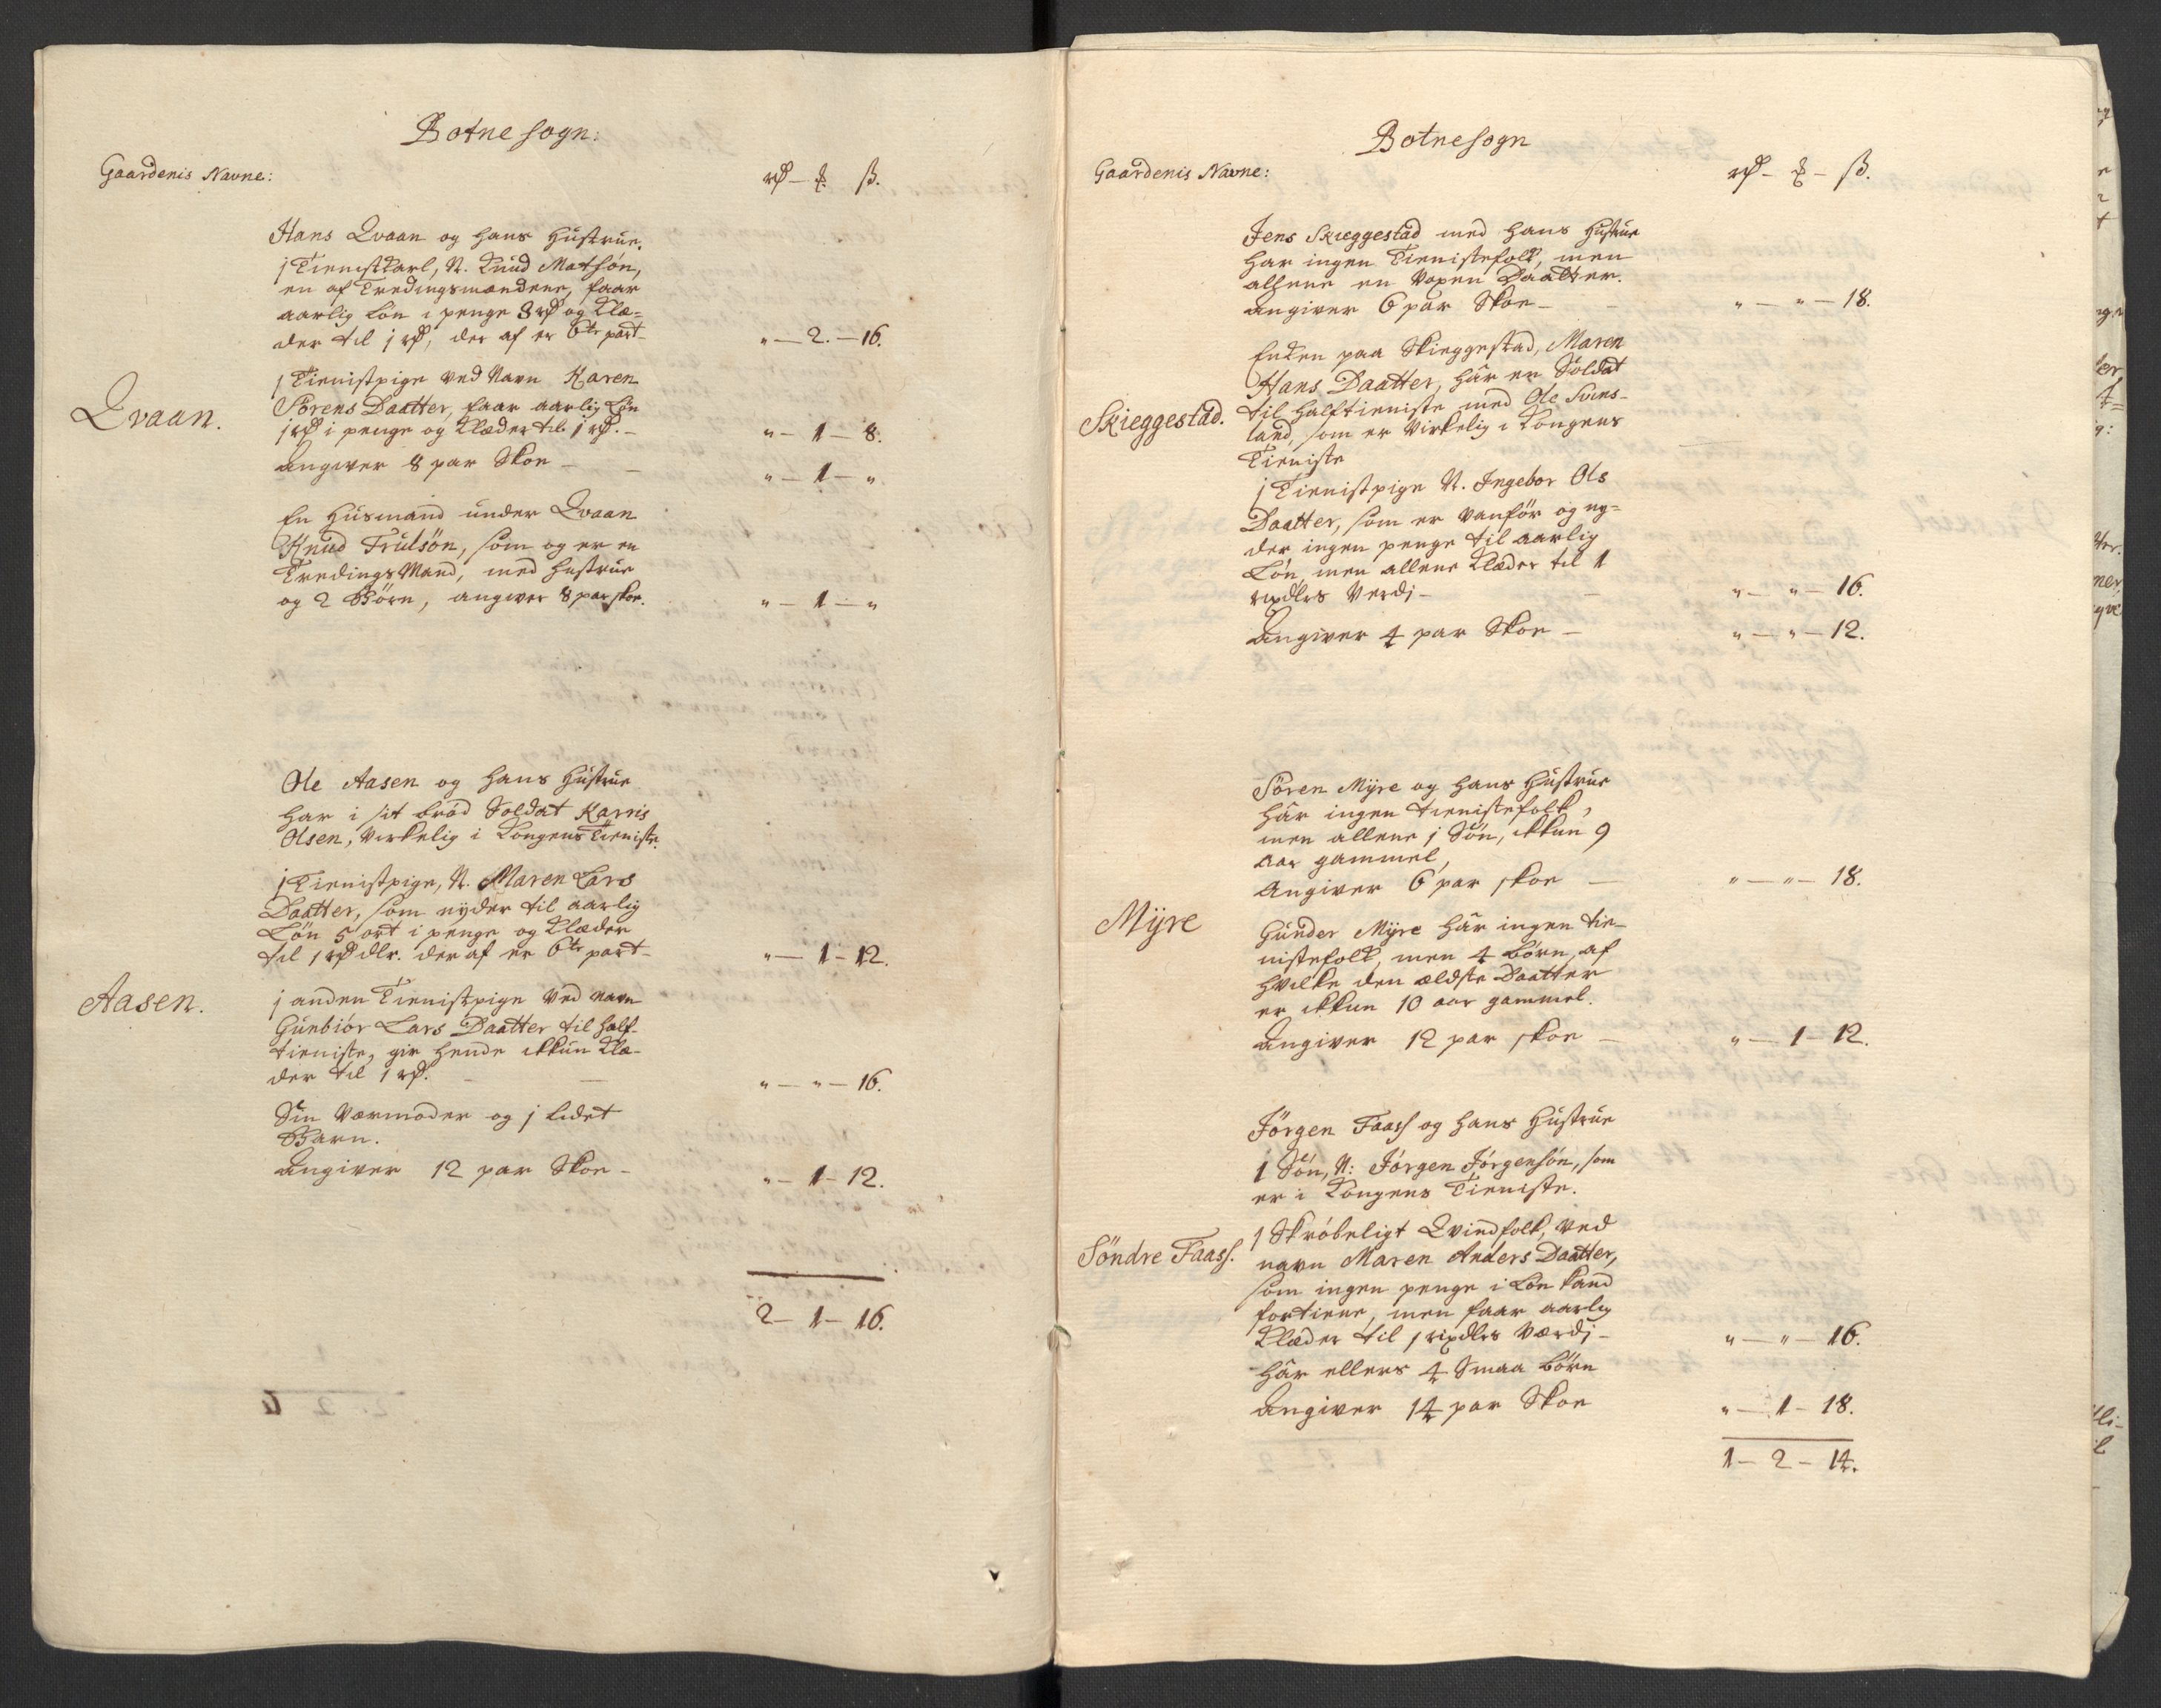 Botne sogn:
Gaardenis Navne:
rd – ß.
Hans Qvaan og hans Hustrue.
j Tienistkarl, N. Knud Matsøn,
en af Tredingsmændene, faar
aarlig Løn i penge 3 rd og Klæ-
der til j rd, der af er 6te part- " – 2. – 16.
1 Tienistpige ved Navn Karen
Sørens Daatter, faar aarlig Løn
1 rd i penge og Klæder til j rd. – " – 1 – 8.
Qvaan.
Angiver 8 par Skoe – " – 1 – "
En Husmand under Qvaan
Knud Trulsøn, som og er en
Tredings Mand, med Hustrue
og 2 Børn, angiver 8 par skoe. " – 1 – "
Ole Aasen og hans Hustrue
har i sit brød Soldat Karris
Olsen, virkelig i Kongens Tieniste.
j Tienistpige, N. Maren Lars
Daatter, som nyder til aarlig
Løn 5 ort i penge og Klæder
til 1 rd dlr. der af er 6te part – " – 1 – 12.
Aasen.
j anden Tienistpige ved navn
Gunbiør Lars Daatter til half-
tieniste, gir hende ikkun Klæ-
der til 1 rd. – " – " – 16.
Sin Værmoder og j lidet
Barn.
Angiver 12 par Skoe – " – 1 – 12.
2 – 1 – 16.
Botne sogn
Gaardenis Navne:
rd – ß.
Jens Skieggestad med hans Hustrue
har ingen Tienistefolk, men
allene en voxen Daatter.
Angiver 6 par Skoe – " – " – 18.
Enken paa Skieggestad, Maren
Hans Daatter, har en Soldat
Skieggestad.
til halftieniste med Ole Svens-
land, som er virkelig i Kongens
Tieniste
j Tienistpige N. Ingebor Ols
Daatter, som er vanfør og ny-
der ingen penge til aarlig
Løn, men allene Klæder til 1
rixdlrs Verdj – " – " – 16.
Angiver 4 par Skoe – " – " – 12.
Søren Myre og hans Hustrue
har ingen tienistefolk,
men allene j Søn, ikkun 9
aar gammel,
Angiver 6 par skoe – " – " – 18.
Myre
Gunder Myre har ingen tie-
nistefolk, men 4 børn, af
hvilke den ældste Daatter
er ikkun 10 aar gammel.
Angiver 12 par skoe – " – 1 – 12.
Jørgen Faass og hans Hustrue
1 Søn, N: Jørgen Jørgensøn, som
er i Kongens Tieniste.
1 Skrøbeligt Qvindfolk, ved
Søndre Faass.
navn Maren Anders Daatter,
som ingen penge i Løn kand
fortiene, men faar aarlig
Klæder til 1 rixdlrs Værdj – " – " – 16.
har ellers 4 Smaa børn
Angiver 14 par Skoe " – 1 – 18.
1 – 2 – 14.